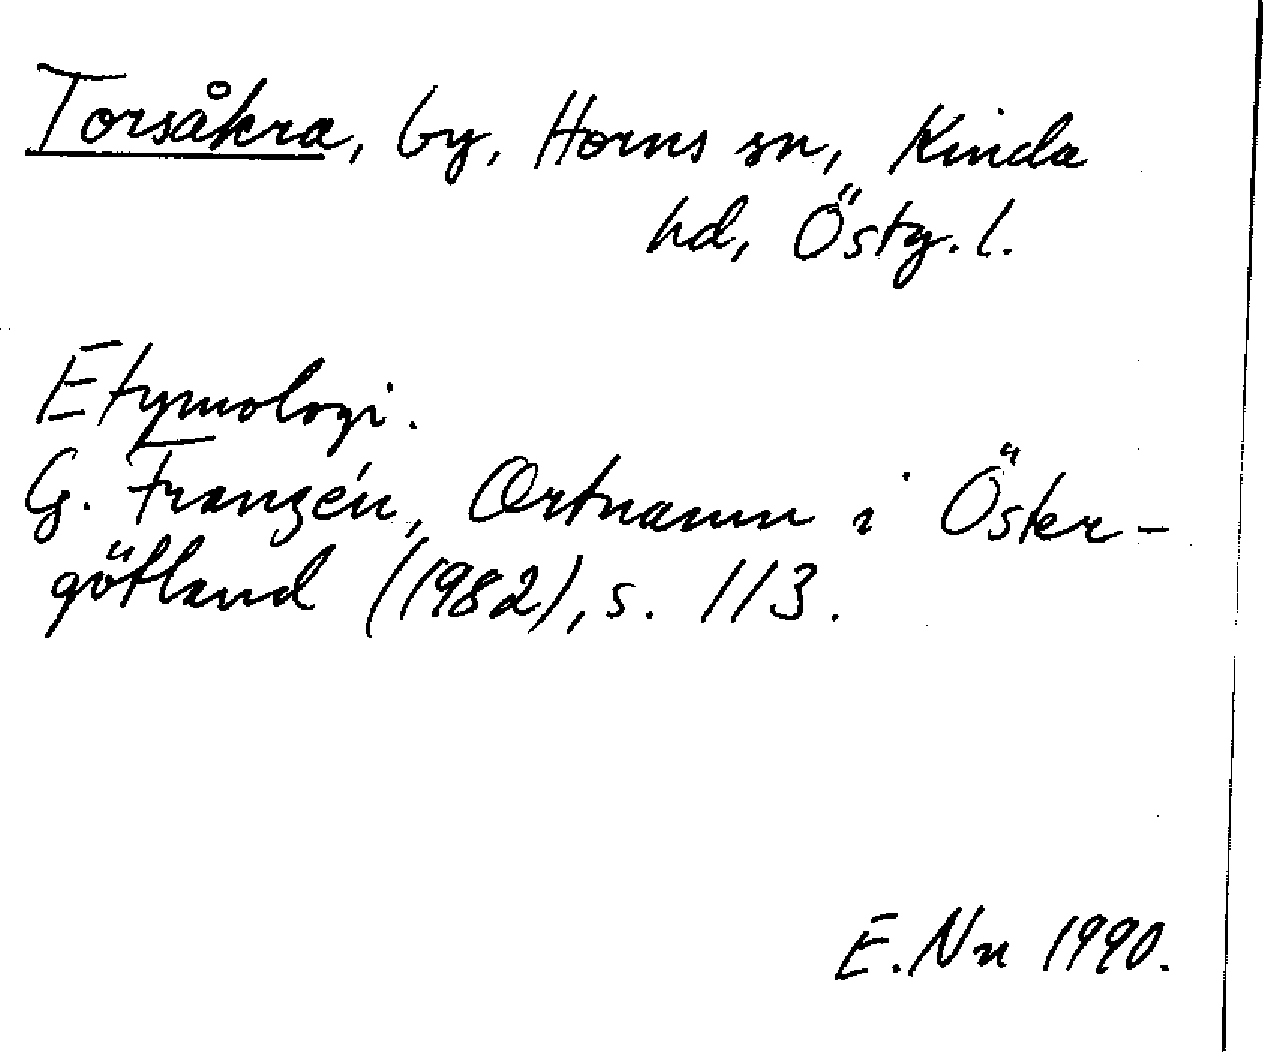 Torsåkra, by, Horns sn, Kinda
hd, Östg. l.
Etymologi.
G. Franzén, Ortnamn i Öster-
götland (1982), s. 113.
E. Nn 1990.